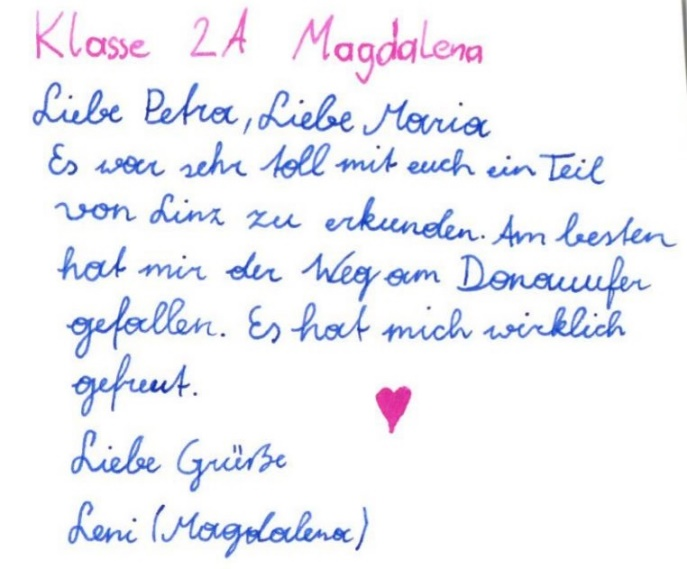 Klasse 2A Magdalena
Liebe Petra, Liebe Maria
Es war sehr toll mit euch ein Teil
von Linz zu erkunden. Am besten
hat mir der Weg am Donauufer
gefallen. Es hat mich wirklich
gefreut.
Liebe Grüße
Leni (Magdalena)